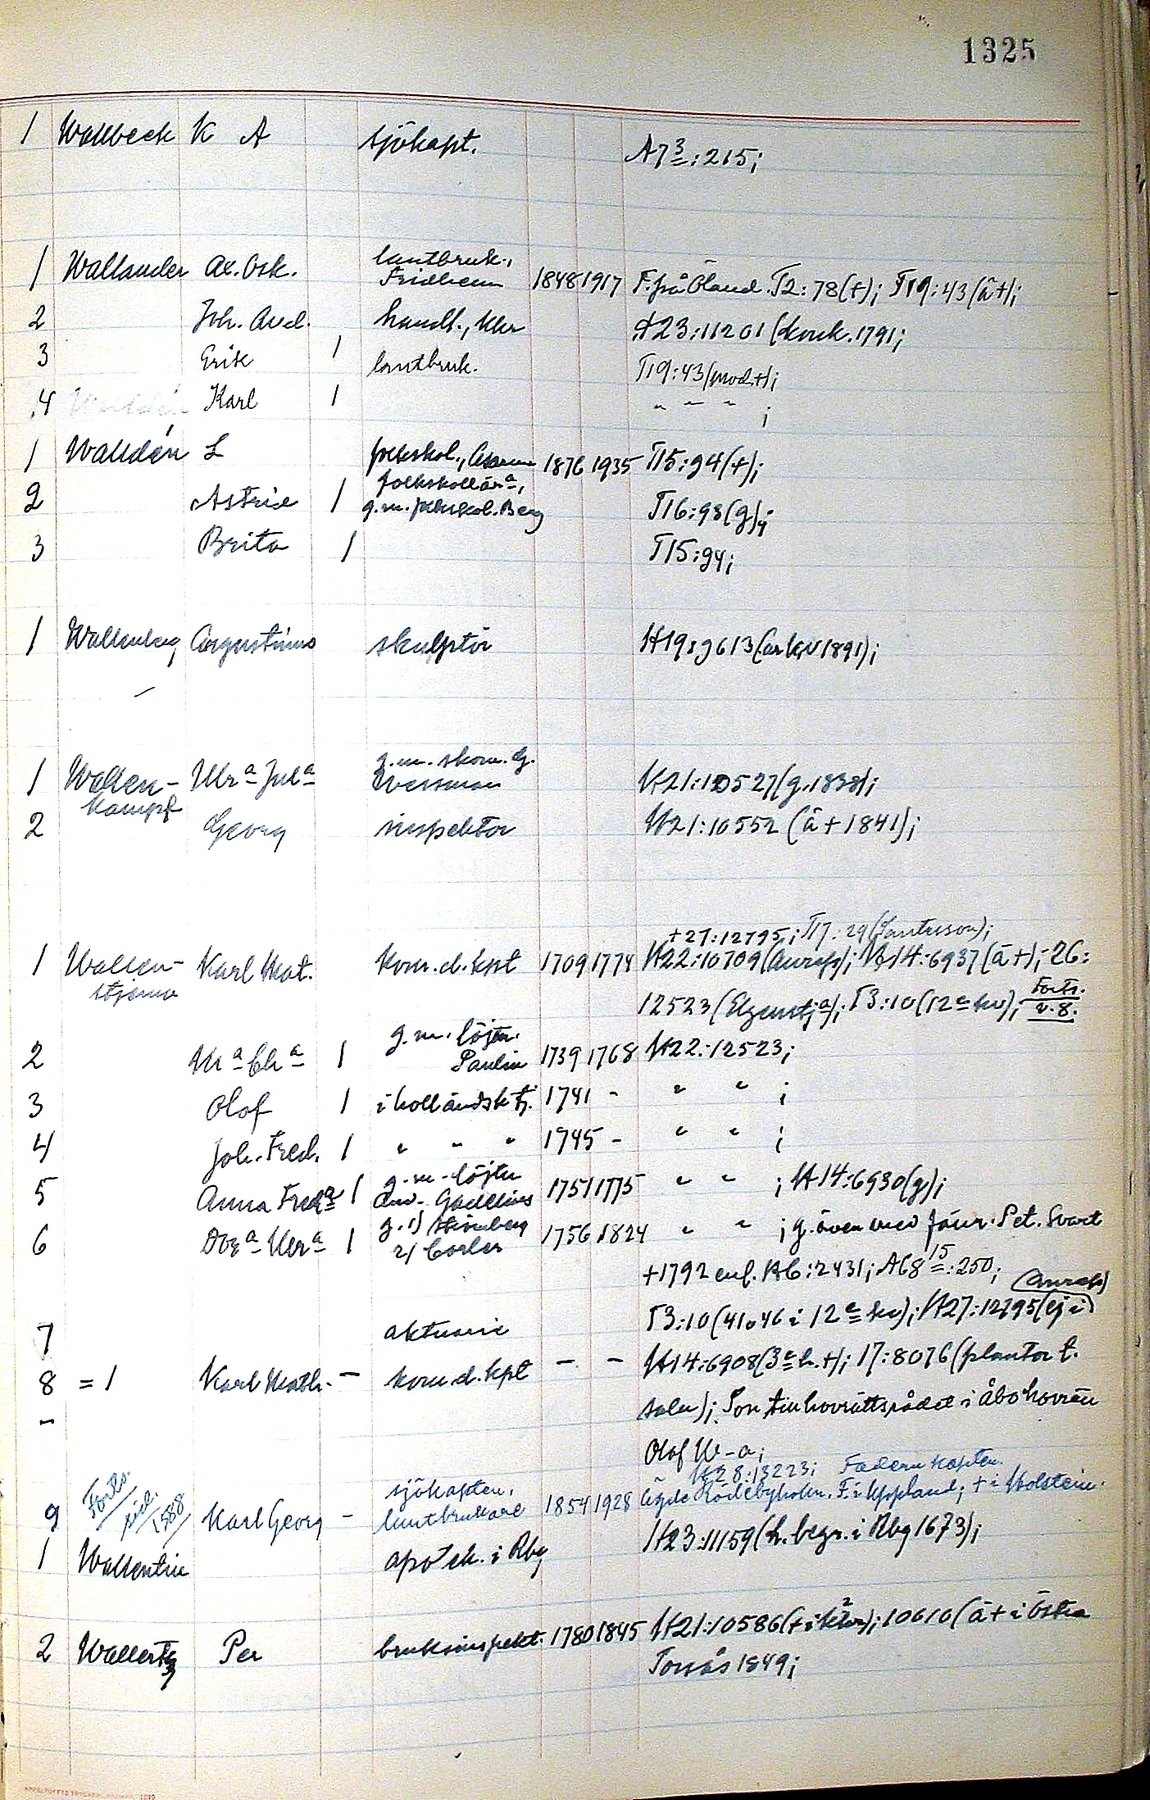 1325
1 Wallbeck K A sjökapt. A7 3:215;
1 Wallander Ax. Osk. lantbruk., Fridhem 1848 1917 F. frå Öland. T2:78(+); T19:43(ä+);
2 Joh. Axel. handl., Khr H23:11201(konk. 1791;
3 Erik 1 lantbruk. T19:43(mod+);
4 Karl 1 " " " ;
1 Walldén L folkskol., 1876 1935 T15:94(+);
2 Astrid 1 folkskollär a, g.m. folkskol. Berg T16:98(g);
3 Brita 1 T15:94;
1 Wallenberg Augustinus skulptör H19:9613(ark 1891);
1 Wallen- Ulr a Jul a g.m. skom. G. Wessman H21:10527(g.1838);
kampf
2 Georg inspektor H21:10552 (ä+1841);
+27:12795; T17:29
1 Wallen- Karl Mat. kom.d.kpt 1709 1774 H22:10709 (Aurep); 14:6937(ä+); 26:
stjerna 12523 (Elgenstj a); T3:10(12 e hv); Forts. v. 8.
2 Ul a Chr a 1 g.m. löjtn. Paulin 1739 1768 H22:12523;
3 Olof 1 i holländsk tj. 1741 - " " ;
4 Joh. Fred. 1 " " " 1745 - " " ;
5 Anna Fred a 1 g.m. löjtn And. Gadelius 1751 1775 " " ; H14:6930(g);
6 Dor a Ulr a 1 g. 1) Strömberg 2) Carler 1756 1824 " " ; g. även med Pet. Svart
+1792 enl. H6:2431; A68 15:250;
T3:10(41046 i 12 e hv); H27:12795(ej i (Aurep)
7 aktuarie
8 = 1 Karl Math. - kom.d.kpt - - H14:6908(3 e h.+); 17:8076(plantor t.
salu); Son till hovrättsrådet i Åbo hovrätt
Olof W-a;
H28:13223; Fadern kapten.
9 Forts. sid. 1588 Karl Georg - sjökapten, lantbrukare 1854 1928 ägde Rödebyholm. F. i Uppland; + i Holstein.
1 Wallentin apotek. i Rbg H23:11159(h. begr. i Rbg 1673);
2 Per bruksinspekt. 1780 1845 H21:10586(+i); 10610(ä+ i Östra
Torsås 1849;